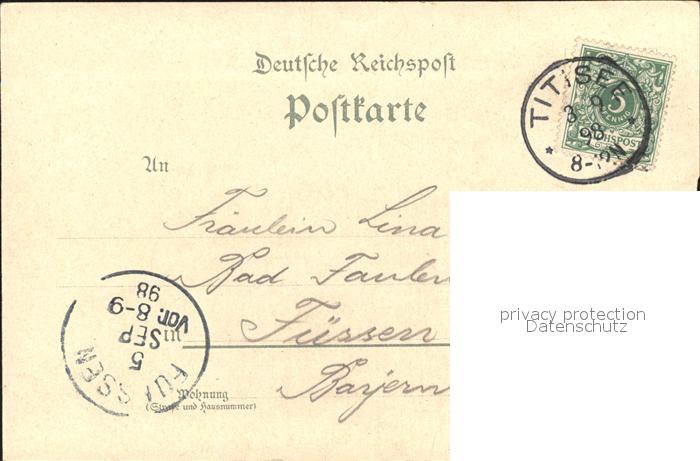 Deutsche Reichspost
Postkarte
TITISEE
3 9
98
8-9N
5
PFENNIG
REICHSPOST
An
Fräulein Lina
Bad Faulen
in Füssen
Bayern
Wohnung
(Straße und Hausnummer)
FÜSSEN
5
SEP
Vor. 8-9
98
privacy protection
Datenschutz